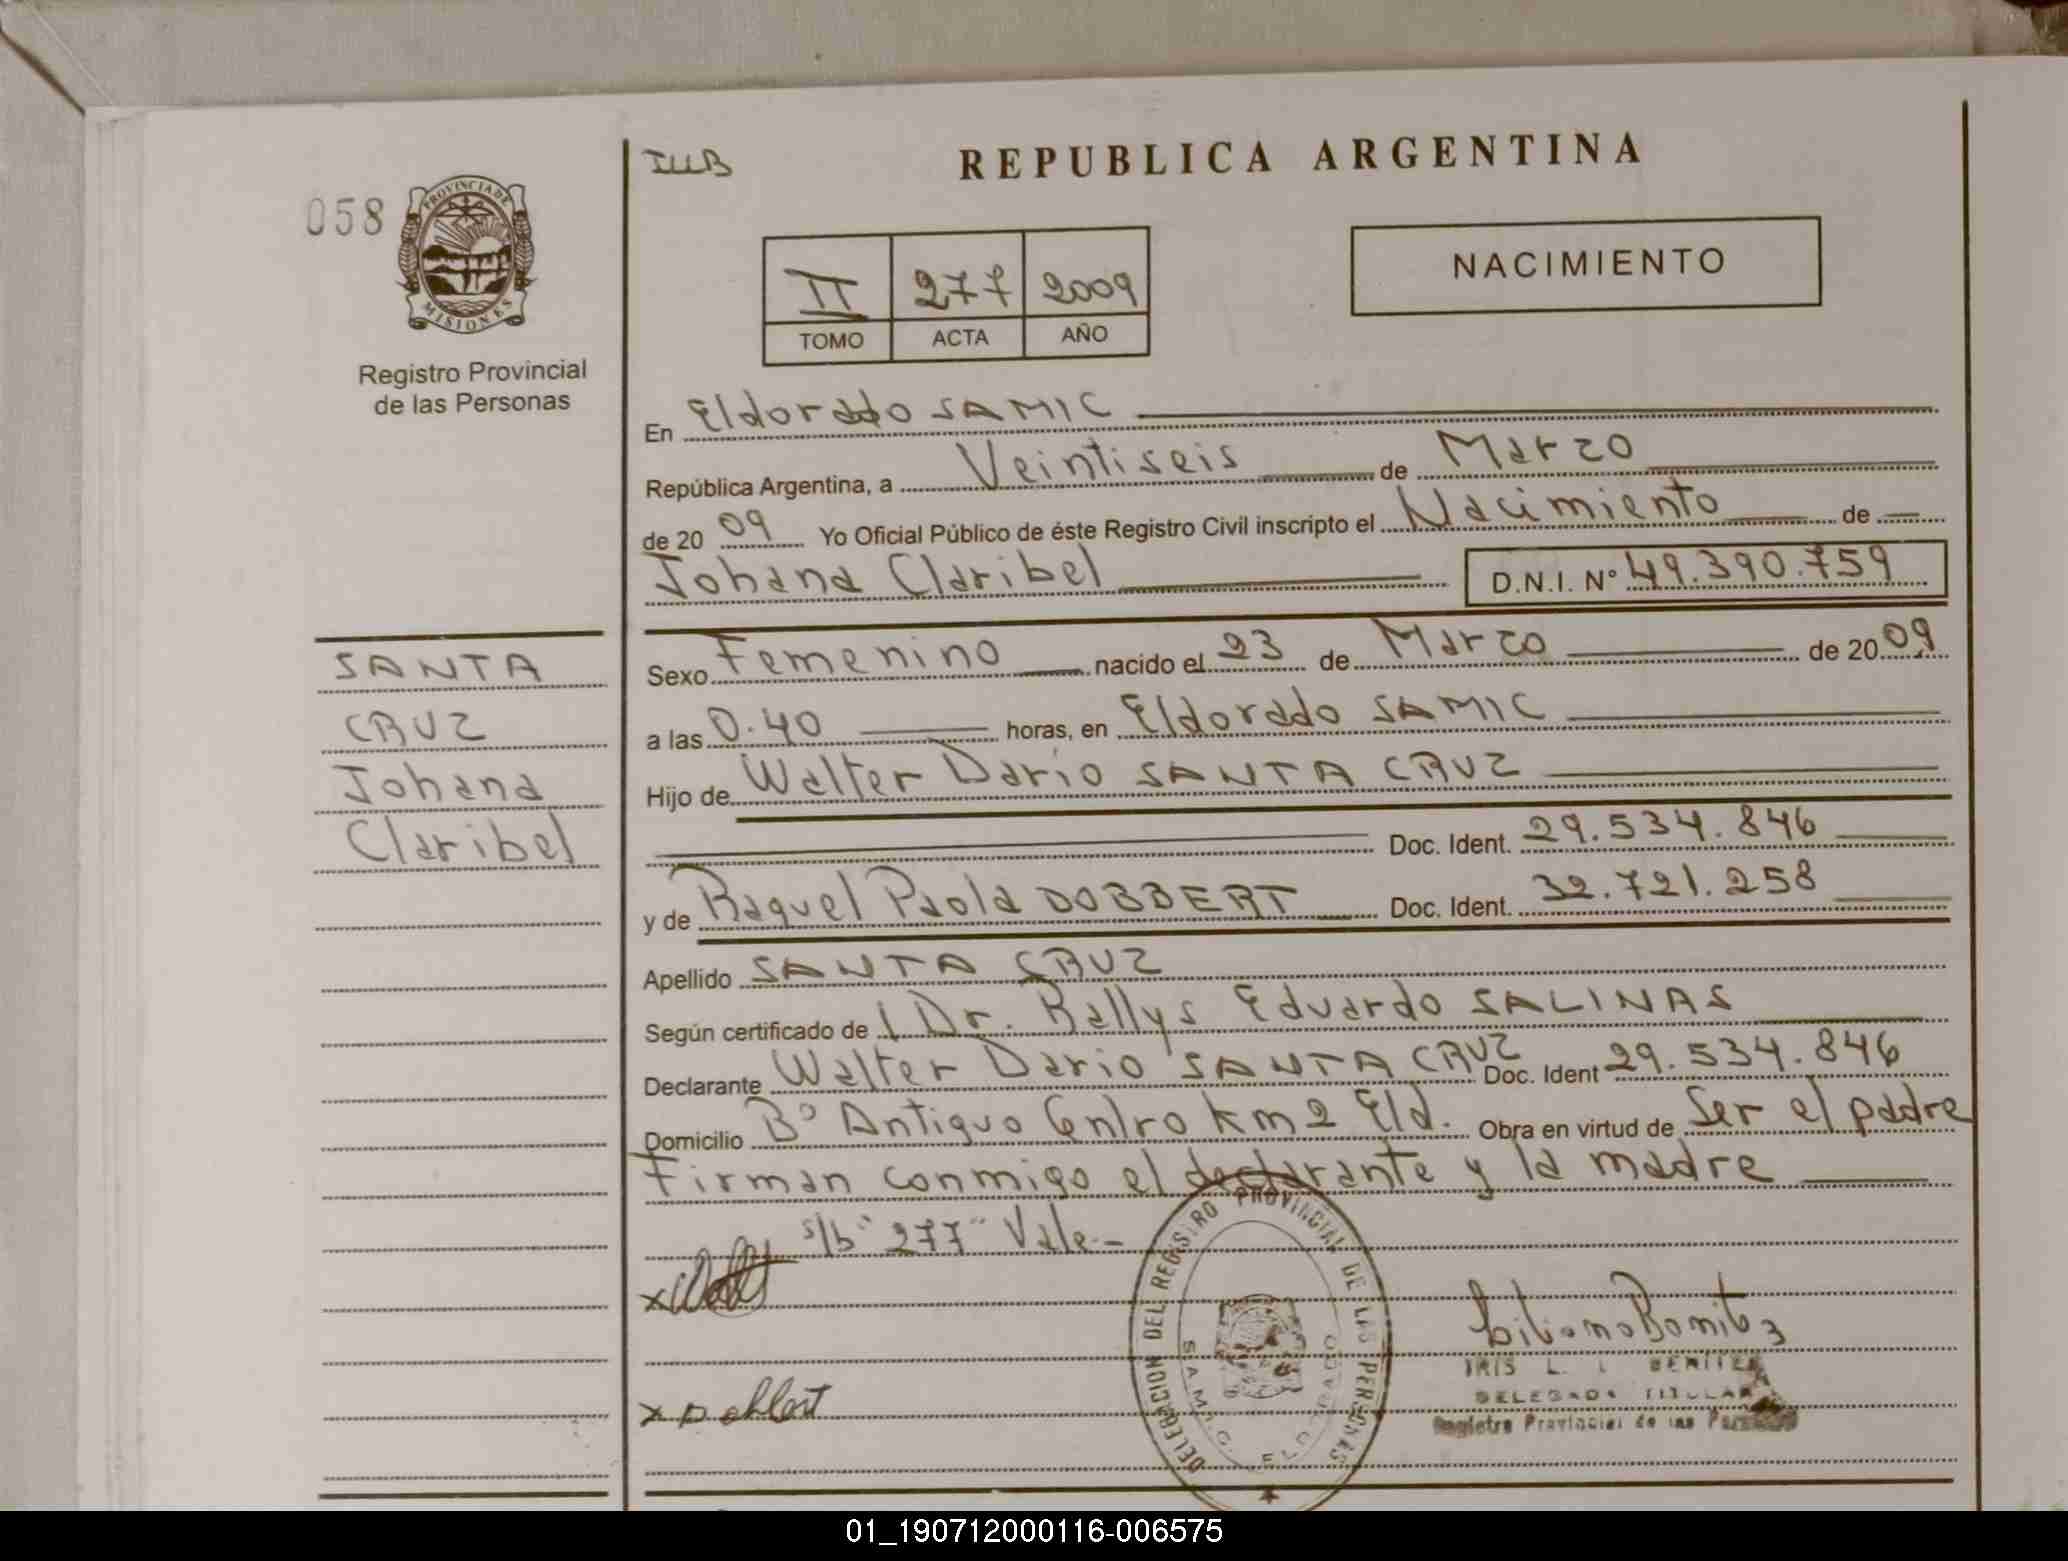 058
PROVINCIA DE
MISIONES
Registro Provincial
de las Personas
REPUBLICA ARGENTINA
II 277 2009
TOMO ACTA AÑO
NACIMIENTO
En Eldorado SAMIC
República Argentina, a Veintiseis de Marzo
de 20 09 Yo Oficial Público de éste Registro Civil inscripto el Nacimiento de
Johana Claribel D.N.I. N° 49.390.759
SANTA
CRUZ
Johana
Claribel
Sexo Femenino nacido el 23 de Marzo de 20 09
a las 0.40 horas, en Eldorado SAMIC
Hijo de Walter Dario SANTA CRUZ
Doc. Ident. 29.534.846
y de Raquel Paola DOBBERT Doc. Ident. 32.721.258
Apellido SANTA CRUZ
Según certificado de Dr. Rallys Eduardo SALINAS
Declarante Walter Dario SANTA CRUZ Doc. Ident 29.534.846
Domicilio B° Antiguo Centro Km 2 Eld. Obra en virtud de Ser el padre
Firman conmigo el declarante y la madre
s/b "277" Vale.-
DELEGACION DEL REGISTRO PROVINCIAL DE LAS PERSONAS
S.A.M.I.C. ELDORADO
IRIS L. BENITEZ
DELEGADA TITULAR
Registro Provincial de las Personas
01_190712000116-006575